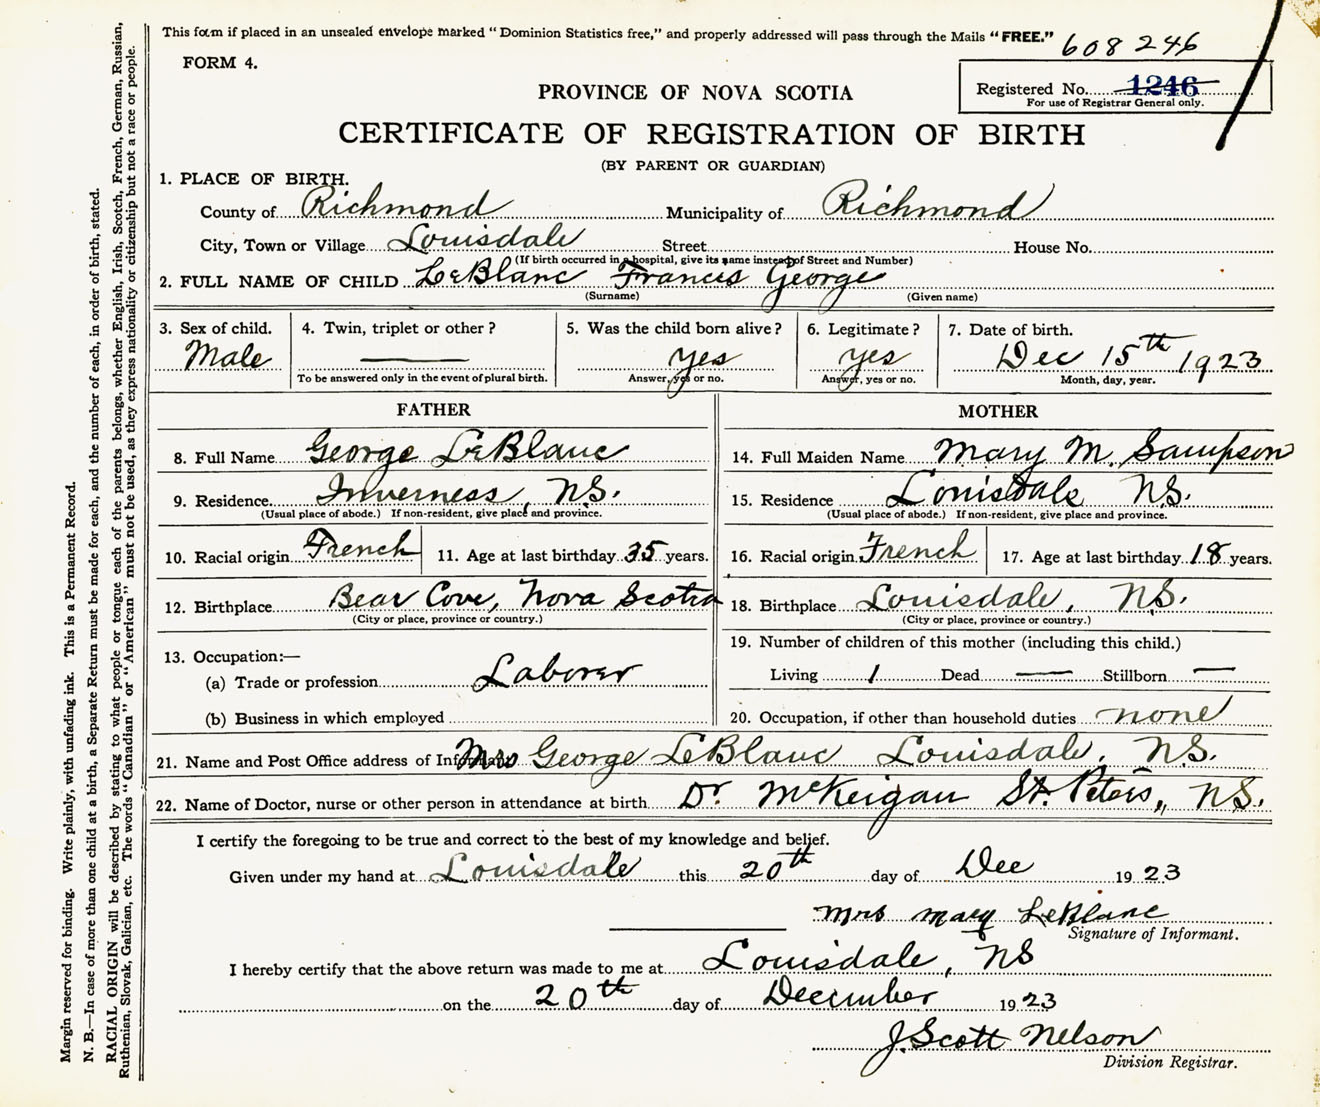 This form if placed in an unsealed envelope marked "Dominion Statistics free," and properly addressed will pass through the Mails "FREE."
608246
FORM 4.
Registered No. 1246
For use of Registrar General only.
PROVINCE OF NOVA SCOTIA
CERTIFICATE OF REGISTRATION OF BIRTH
(BY PARENT OR GUARDIAN)
1. PLACE OF BIRTH.
County of Richmond Municipality of Richmond
City, Town or Village Louisdale Street House No.
(If birth occurred in a hospital, give its name instead of Street and Number)
2. FULL NAME OF CHILD LeBlanc Francis George
(Surname) (Given name)
3. Sex of child. 4. Twin, triplet or other? 5. Was the child born alive? 6. Legitimate? 7. Date of birth.
Male — yes yes Dec 15th 1923
To be answered only in the event of plural birth. Answer, yes or no. Answer, yes or no. Month, day, year.
FATHER
8. Full Name George LeBlanc
9. Residence Inverness, N.S.
(Usual place of abode.) If non-resident, give place and province.
10. Racial origin French 11. Age at last birthday 35 years.
12. Birthplace Bear Cove, Nova Scotia
(City or place, province or country.)
13. Occupation:—
(a) Trade or profession Laborer
(b) Business in which employed
MOTHER
14. Full Maiden Name Mary M. Sampson
15. Residence Louisdale N.S.
(Usual place of abode.) If non-resident, give place and province.
16. Racial origin French 17. Age at last birthday 18 years.
18. Birthplace Louisdale, N.S.
(City or place, province or country.)
19. Number of children of this mother (including this child.)
Living 1 Dead — Stillborn —
20. Occupation, if other than household duties none
21. Name and Post Office address of Informant Mrs George LeBlanc Louisdale, N.S.
22. Name of Doctor, nurse or other person in attendance at birth Dr. McKeigan St. Peters, N.S.
I certify the foregoing to be true and correct to the best of my knowledge and belief.
Given under my hand at Louisdale this 20th day of Dec 1923
Mrs Mary LeBlanc
Signature of Informant.
I hereby certify that the above return was made to me at Louisdale, NS
on the 20th day of December 1923
J. Scott Nelson
Division Registrar.
Margin reserved for binding. Write plainly, with unfading ink. This is a Permanent Record.
N. B.—In case of more than one child at a birth, a Separate Return must be made for each, and the number of each, in order of birth, stated.
RACIAL ORIGIN will be described by stating to what people or tongue each of the parents belongs, whether English, Irish, Scotch, French, German, Russian,
Ruthenian, Slovak, Galician, etc. The words "Canadian" or "American" must not be used, as they express nationality or citizenship but not a race or people.